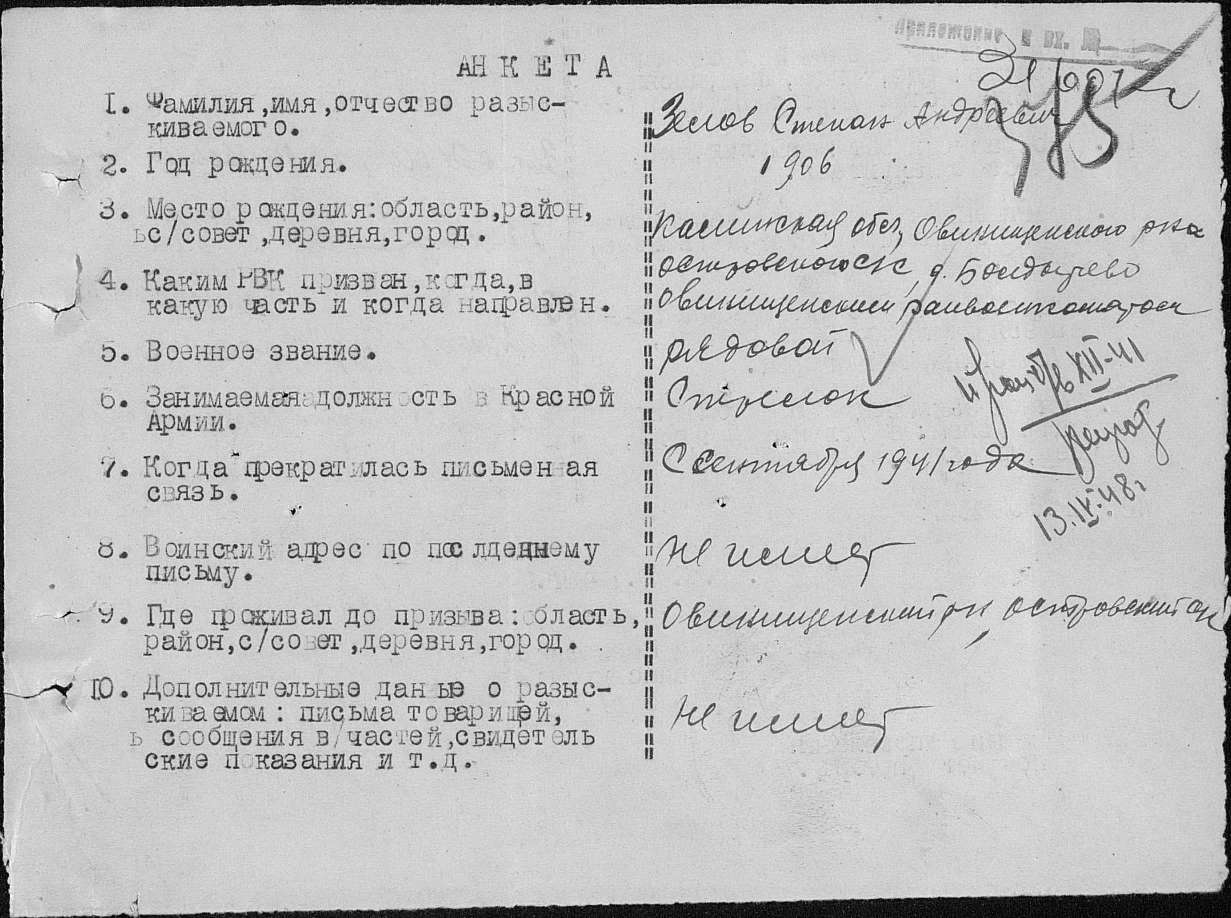 Приложение к вх. №
АНКЕТА
1. Фамилия,имя,отчество разыс-
киваемого.
Зелов Степан Андреевич
2. Год рождения.
1906
3. Место рождения:область,район,
с/совет,деревня,город.
Калининская обл, Овинищенского р-на
Островского с/с, д. Болдычево
4. Каким РВК призван,когда,в
какую часть и когда направлен.
Овинищенским райвоенкоматом
5. Военное звание.
рядовой
6. Занимаемая должность в Красной
Армии.
Стрелок
XII-41
7. Когда прекратилась письменная
связь.
С сентября 1941 года
13.IV.48г
8. Воинский адрес по послдеднему
письму.
не имеет
9. Где проживал до призыва:область,
район,с/совет,деревня,город.
Овинищенский рн, Островский с/с
10. Дополнительные данные о разыс-
киваемом: письма товарищей,
сообщения в/частей,свидетель
ские показания и т.д.
не имеет